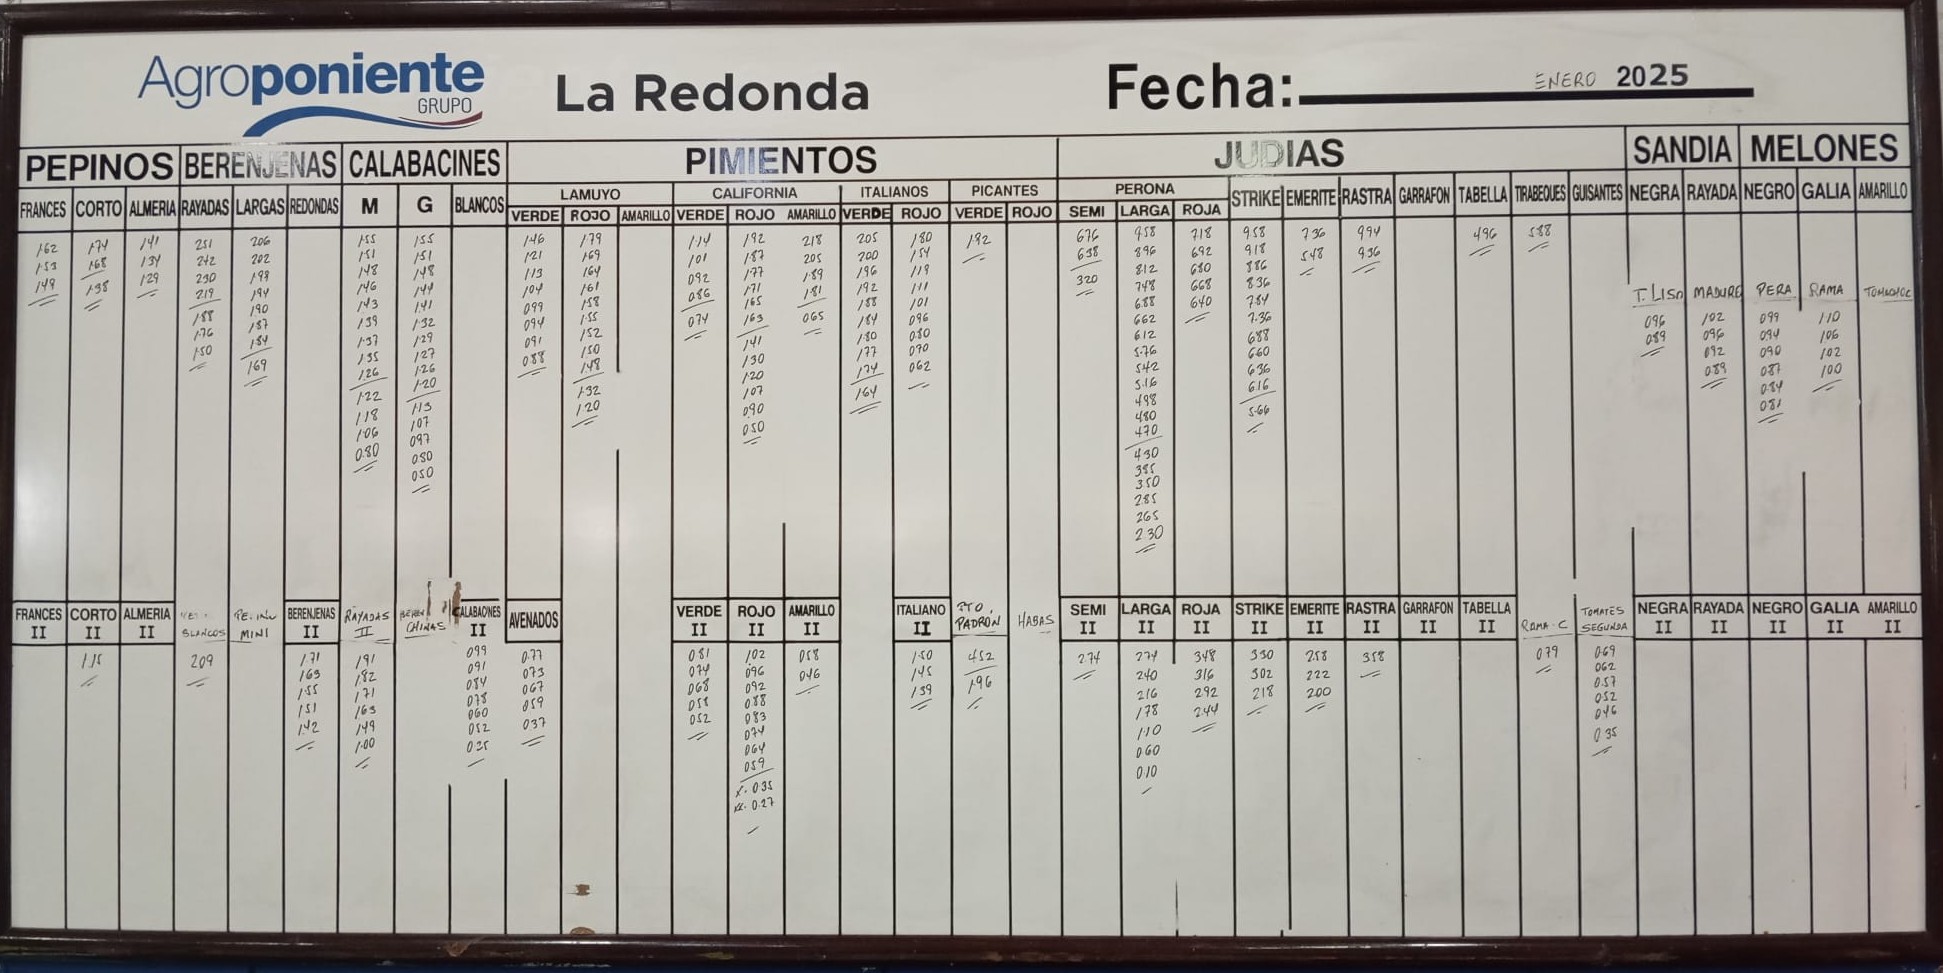 Agroponiente
GRUPO
La Redonda
Fecha: ENERO 2025
PEPINOS BERENJENAS CALABACINES PIMIENTOS JUDIAS SANDIA MELONES
LAMUYO CALIFORNIA ITALIANOS PICANTES PERONA
FRANCES CORTO ALMERIA RAYADAS LARGAS REDONDAS M G BLANCOS VERDE ROJO AMARILLO VERDE ROJO AMARILLO VERDE ROJO VERDE ROJO SEMI LARGA ROJA STRIKE EMERITE RASTRA GARRAFON TABELLA TIRABEQUES GUISANTES NEGRA RAYADA NEGRO GALIA AMARILLO
162 174 141 251 206 155 155 146 179 114 192 218 205 180 192 676 958 718 958 736 994 496 588
153 168 134 242 202 151 151 121 169 101 187 205 200 154 638 896 692 918 548 936
149 138 129 230 198 148 148 113 164 092 177 189 196 119 320 812 680 886
219 194 146 144 104 161 086 171 181 192 111 748 668 836
188 190 143 141 099 158 074 165 065 188 101 688 640 784
176 187 139 132 094 155 163 184 096 662 736
150 184 137 129 091 152 141 180 080 612 688
169 135 127 088 150 130 177 070 576 660
126 126 148 120 174 062 542 636
122 120 132 107 164 516 616
118 113 120 090 498 566
106 107 050 480
080 097 470
080 430
050 385
350
285
265
230
T. LISO MADURE PERA RAMA
096 102 099 110
089 096 094 106
092 090 102
089 087 100
084
081
FRANCES II CORTO II ALMERIA II BLANCOS MINI BERENJENAS II RAYADAS II CHINAS CALABACINES II AVENADOS VERDE II ROJO II AMARILLO II ITALIANO II PTO. PADRON HABAS SEMI II LARGA II ROJA II STRIKE II EMERITE II RASTRA II GARRAFON II TABELLA II RAMA-C TOMATES SEGUNDA NEGRA II RAYADA II NEGRO II GALIA II AMARILLO II
115 209 171 191 099 077 081 102 058 150 452 274 274 348 330 258 358 079 069
163 182 091 073 074 096 046 145 196 240 316 302 222 062
155 171 084 067 068 092 139 216 292 218 200 057
151 163 078 059 058 088 178 244 052
142 149 060 037 052 083 110 046
100 052 074 060 035
035 064 010
059
x. 035
xx. 0.27